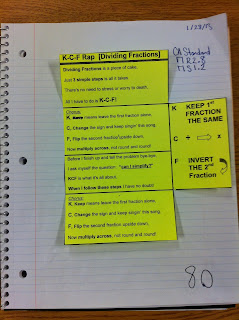 1/28/13
CA Standard
MR2.3
NS1.2
K-C-F Rap [Dividing Fractions]
Dividing Fractions is a piece of cake.
Just 3 simple steps is all it takes.
There's no need to stress or worry to death.
All I have to do is K-C-F!
Chorus:
K, Keep means leave the first fraction alone.
C, Change the sign and keep singin' this song.
F, Flip the second fraction upside down,
Now multiply across, not round and round!
Before I finish up and till the problem bye-bye.
I ask myself the question, "can I simplify?"
KCF is what it's all about.
When I follow these steps I have no doubt!
Chorus:
K, Keep means leave the first fraction alone.
C, Change the sign and keep singin' this song.
F, Flip the second fraction upside down,
Now multiply across, not round and round!
K KEEP 1ST
FRACTION
THE SAME
C ÷ x
F INVERT
THE 2ND
Fraction
80